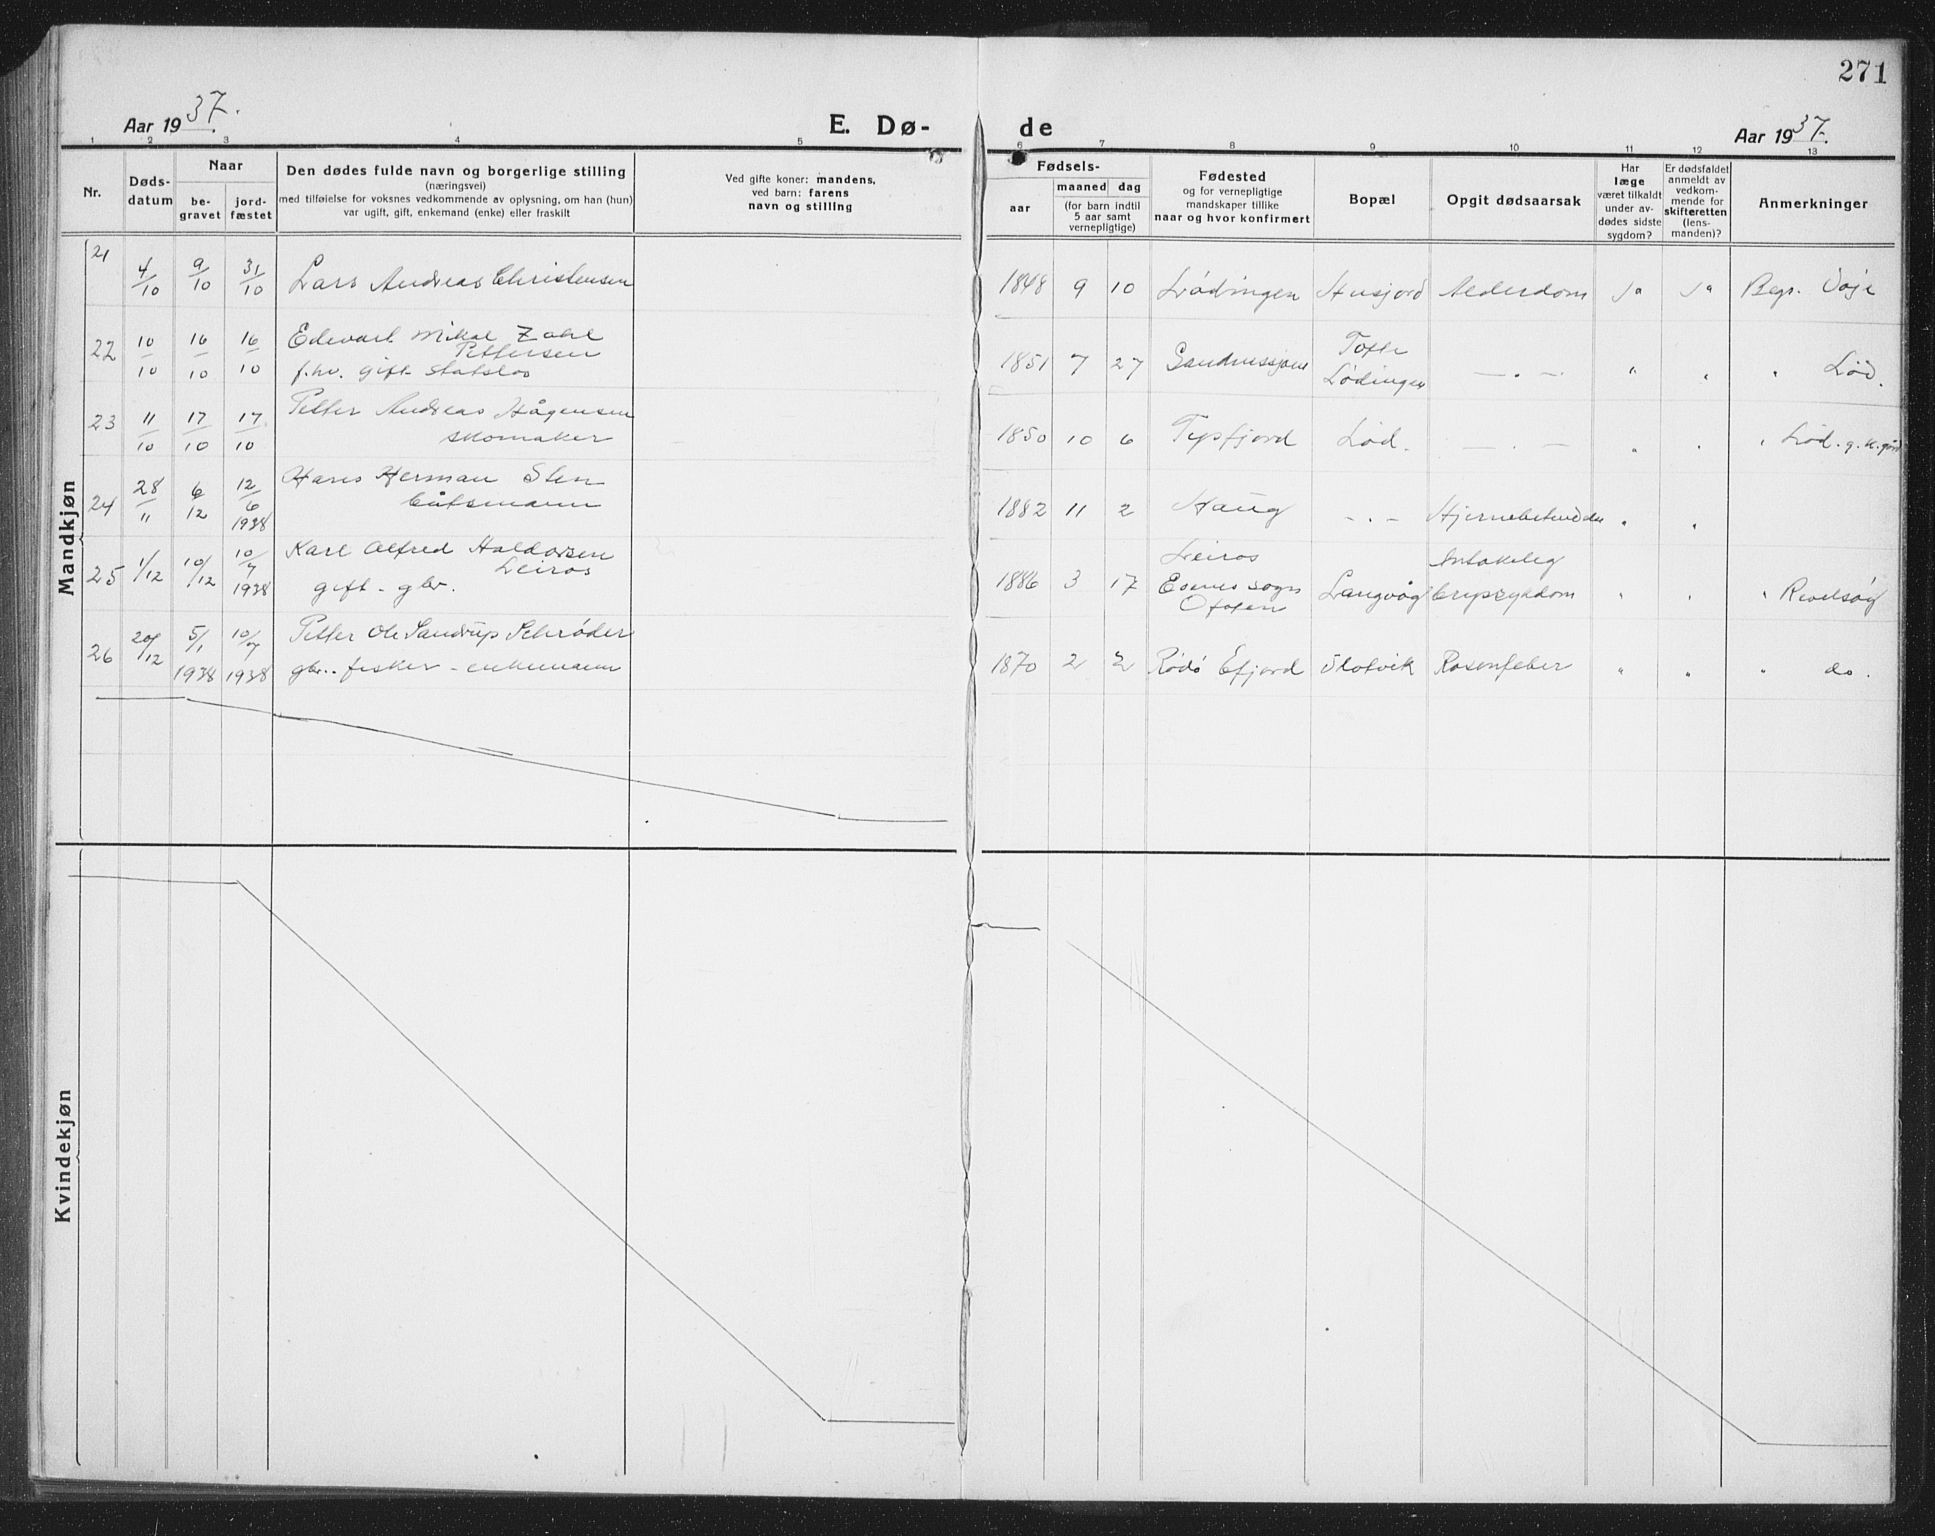 271
Aar 1937.
E. Dø-
de
Aar 1937.
1 2 3 4 5 6 7 8 9 10 11 12 13
Nr.
Døds-
datum
Naar
be-
gravet
jord-
fæstet
Den dødes fulde navn og borgerlige stilling
(næringsvei)
med tilføielse for voksnes vedkommende av oplysning, om han (hun)
var ugift, gift, enkemand (enke) eller fraskilt
Ved gifte koner: mandens,
ved barn: farens
navn og stilling
Fødsels-
aar
maaned
dag
(for barn indtil
5 aar samt
vernepligtige)
Fødested
og for vernepligtige
mandskaper tillike
naar og hvor konfirmert
Bopæl
Opgit dødsaarsak
Har
læge
været tilkaldt
under av-
dødes sidste
sygdom?
Er dødsfaldet
anmeldt av
vedkom-
mende for
skifteretten
(lens-
manden)?
Anmerkninger
Mandkjøn
21 4/10 9/10 31/10 Lars Andreas Christensen 1848 9 10 Lødingen Husjord Alderdom Ja Ja Begr.
22 10/10 16/10 16/10 Edevart Mikal Zahl
Pettersen
f.hv. gift statslos 1851 7 27 Tofte
Lødingen — " — " " " Lød.
23 11/10 17/10 17/10 Petter Andreas Hågensen
skomaker 1850 10 6 Tysfjord Lød. — " — " " " Lød. g. k. gård
24 28/11 6/12 12/6 1938 Hans Herman Sten
båtsmann 1882 11 2 Haug - " - " "
25 1/12 10/12 10/7 1938 Karl Alfred Haldorsen
Leiros
gift - gbr. 1886 3 17 Leiros
Evenes sogn
Ofoten Langvåg " " "
26 20/12 5/1 1938 10/7 1938 Petter Ole Sandrup Schrøder
gbr. fisker - enkemann 1870 2 2 Rødø Efjord Rosenfeber " " " do.
Kvindekjøn